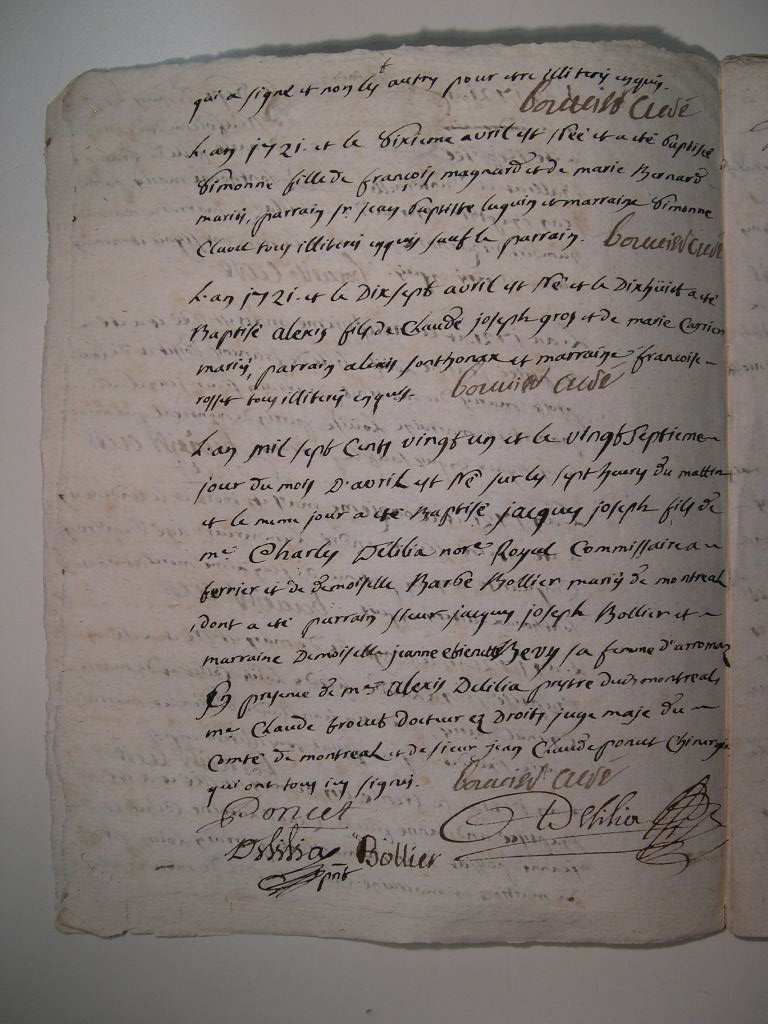 qui a signé et non les autres pour etre illiterés enquis.
bouvier Curé
L'an 1721. et le sixieme avril est Née et a eté baptisée
Simonne fille de francois magnard et de marie Bernard
mariés, parrain sr jean baptiste luquin et marraine Simonne
Clavel tous illiterés enquis sauf le parrain. bouvier Curé
L'an 1721. et le Dixsept avril est Né et le Dixhuit a eté
Baptisé alexis fils de Claude joseph gros et de marie
mariés, parrain alexis sonthonax et marraine francoise
rosset tous illiterés enquis. bouvier Curé
L'an mil sept Cents vingt un et le vingt Septieme
jour du mois D'avril est Né sur les sept heures du mattin
et le meme jour a eté Baptisé jacques joseph fils de
me Charles Delilia nore Royal Commissaire a
terrier et de demoiselle Barbe Bollier mariés de montreal
dont a eté parrain sieur jacques joseph Bollier et
marraine Demoiselle jeanne etienette Revy sa femme d'arromaz
En presence de mre alexis Delilia prestre dudt montreal
me Claude Docteur ez Droits juge maje du
Comté de montreal et de sieur jean Claude poncet Chirurgie
qui ont tous icy signés. bouvier Curé
Poncet
Delilia
Delilia Bollier
pbre